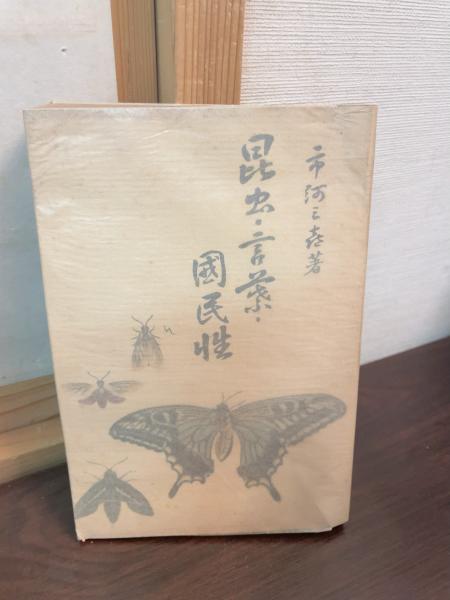 市河三喜著
昆虫・言葉・
國民性